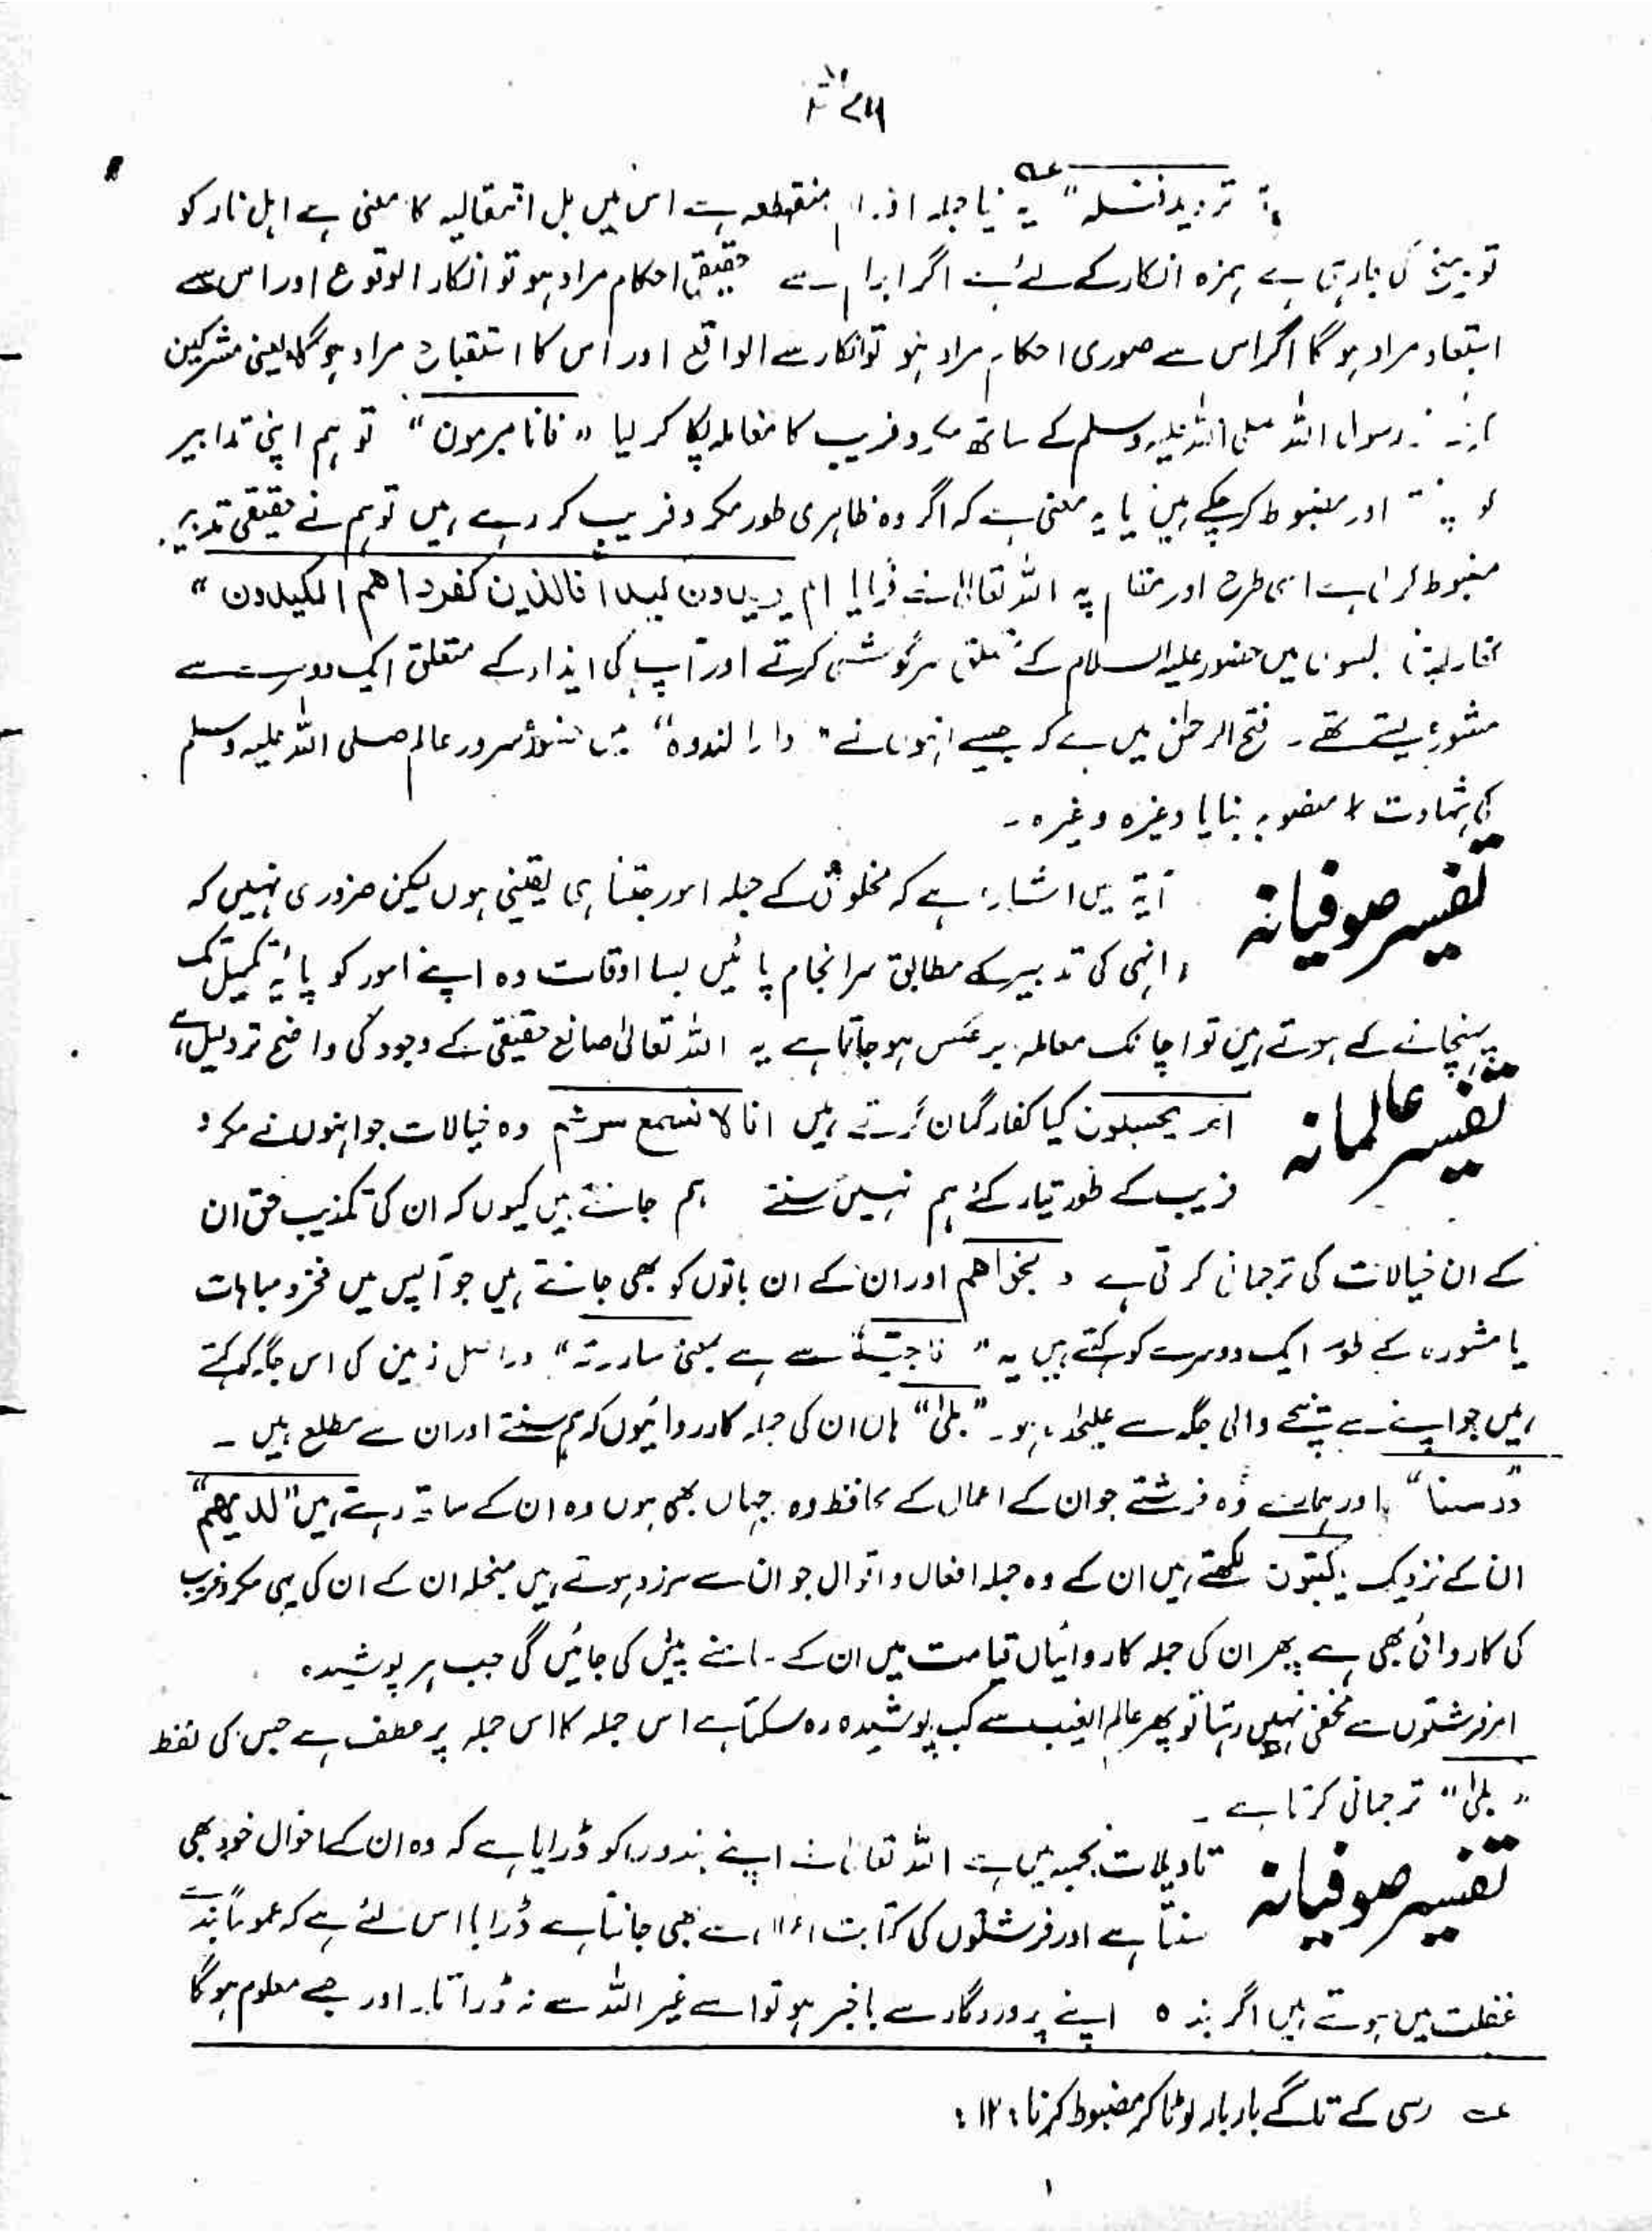 یہ نیا جملہ ہے منقطعہ ہے اس میں بل انتقالیہ کا معنی ہے اہل نار کو
توبیخ کی جا رہی ہے ہمزہ انکار کے لئے ہے اگر ابرام سے حقیقی احکام مراد ہو تو انکار الوقوع اور اس سے
استبعاد مراد ہو گا اگر اس سے صوری احکام مراد ہو تو انکار سے الواقع اور اس کا استقباح مراد ہو گا یعنی مشرکین
نے رسول اللہ صلی اللہ علیہ وسلم کے ساتھ مکر و فریب کا معاملہ پکا کر لیا "فانا مبرمون" تو ہم اپنی تدابیر
کو پختہ اور مضبوط کر چکے ہیں یا یہ معنی ہے کہ اگر وہ ظاہری طور مکر و فریب کر رہے ہیں تو ہم نے حقیقی تدبیر
مضبوط کر لی ہے اسی طرح اور مقام پہ اللہ تعالیٰ نے فرمایا ام یریدون کیدا فالذین کفروا ھم المکیدون"
کفار اپنی مجلسوں میں حضور علیہ السلام کے متعلق سرگوشی کرتے اور آپ کی ایذاء کے متعلق ایک دوسرے سے
مشورے لیتے تھے ۔ فتح الرحمٰن میں ہے کہ جیسے انہوں نے "دار الندوہ" میں حضور سرور عالم صلی اللہ علیہ وسلم
کی شہادت کا منصوبہ بنایا وغیرہ وغیرہ ۔
تفسیر صوفیانہ آیۃ میں اشارہ ہے کہ مخلوق کے جملہ امور جتنا ہی یقینی ہوں لیکن ضروری نہیں کہ
وہ انہی کی تدبیر کے مطابق سرانجام پائیں بسا اوقات وہ اپنے امور کو پایۂ تکمیل تک
پہنچانے کے ہوتے ہیں تو اچانک معاملہ برعکس ہو جاتا ہے یہ اللہ تعالیٰ صانع حقیقی کے وجود کی واضح تر دلیل ہے
تفسیر عالمانہ ام یحسبون کیا کفار گمان کرتے ہیں انا لا نسمع سرھم وہ خیالات جو انہوں نے مکر و
فریب کے طور تیار کئے ہم نہیں سنتے ہم جانتے ہیں کیوں کہ ان کی تکذیب حق ان
کے ان خیالات کی ترجمانی کرتی ہے و نجواھم اور ان کے ان باتوں کو بھی جانتے ہیں جو آپس میں فخر و مباہات
یا مشورہ کے طور ایک دوسرے کو کہتے ہیں یہ "ناجیتہ" سے ہے بمعنی ساررتہ" دراصل زمین کی اس جگہ کو کہتے
ہیں جو اپنے سے نیچے والی جگہ سے علیحدہ ہو ۔ "بلیٰ" ہاں ان کی جملہ کارروائیوں کو ہم سنتے اور ان سے مطلع ہیں ۔
"ورسلنا" اور ہمارے وہ فرشتے جو ان کے اعمال کے محافظ وہ جہاں بھی ہوں وہ ان کے ساتھ رہتے ہیں "لدیھم"
ان کے نزدیک یکتبون لکھتے ہیں ان کے وہ جملہ افعال و اقوال جو ان سے سرزد ہوتے ہیں منجملہ ان کے ان کی یہی مکر و فریب
کی کاروائی بھی ہے پھر ان کی جملہ کاروائیاں قیامت میں ان کے سامنے پیش کی جائیں گی جب ہر پوشیدہ
امر فرشتوں سے مخفی نہیں رہتا تو پھر عالم الغیب سے کب پوشیدہ رہ سکتا ہے اس جملہ کا اس جملہ پر عطف ہے جس کی لفظ
"بلیٰ" ترجمانی کرتا ہے ۔
تفسیر صوفیانہ تاویلات نجمیہ میں ہے اللہ تعالیٰ نے اپنے بندوں کو ڈرایا ہے کہ وہ ان کے احوال خود بھی
سنتا ہے اور فرشتوں کی کتابت سے بھی جانتا ہے ڈرایا اس لئے ہے کہ عموماً بندے
غفلت میں ہوتے ہیں اگر بندہ اپنے پروردگار سے باخبر ہو تو اسے غیر اللہ سے نہ ڈراتا اور جسے معلوم ہو گا
عہ رسی کے تاگے بار بار لوٹا کر مضبوط کرنا ۱۲